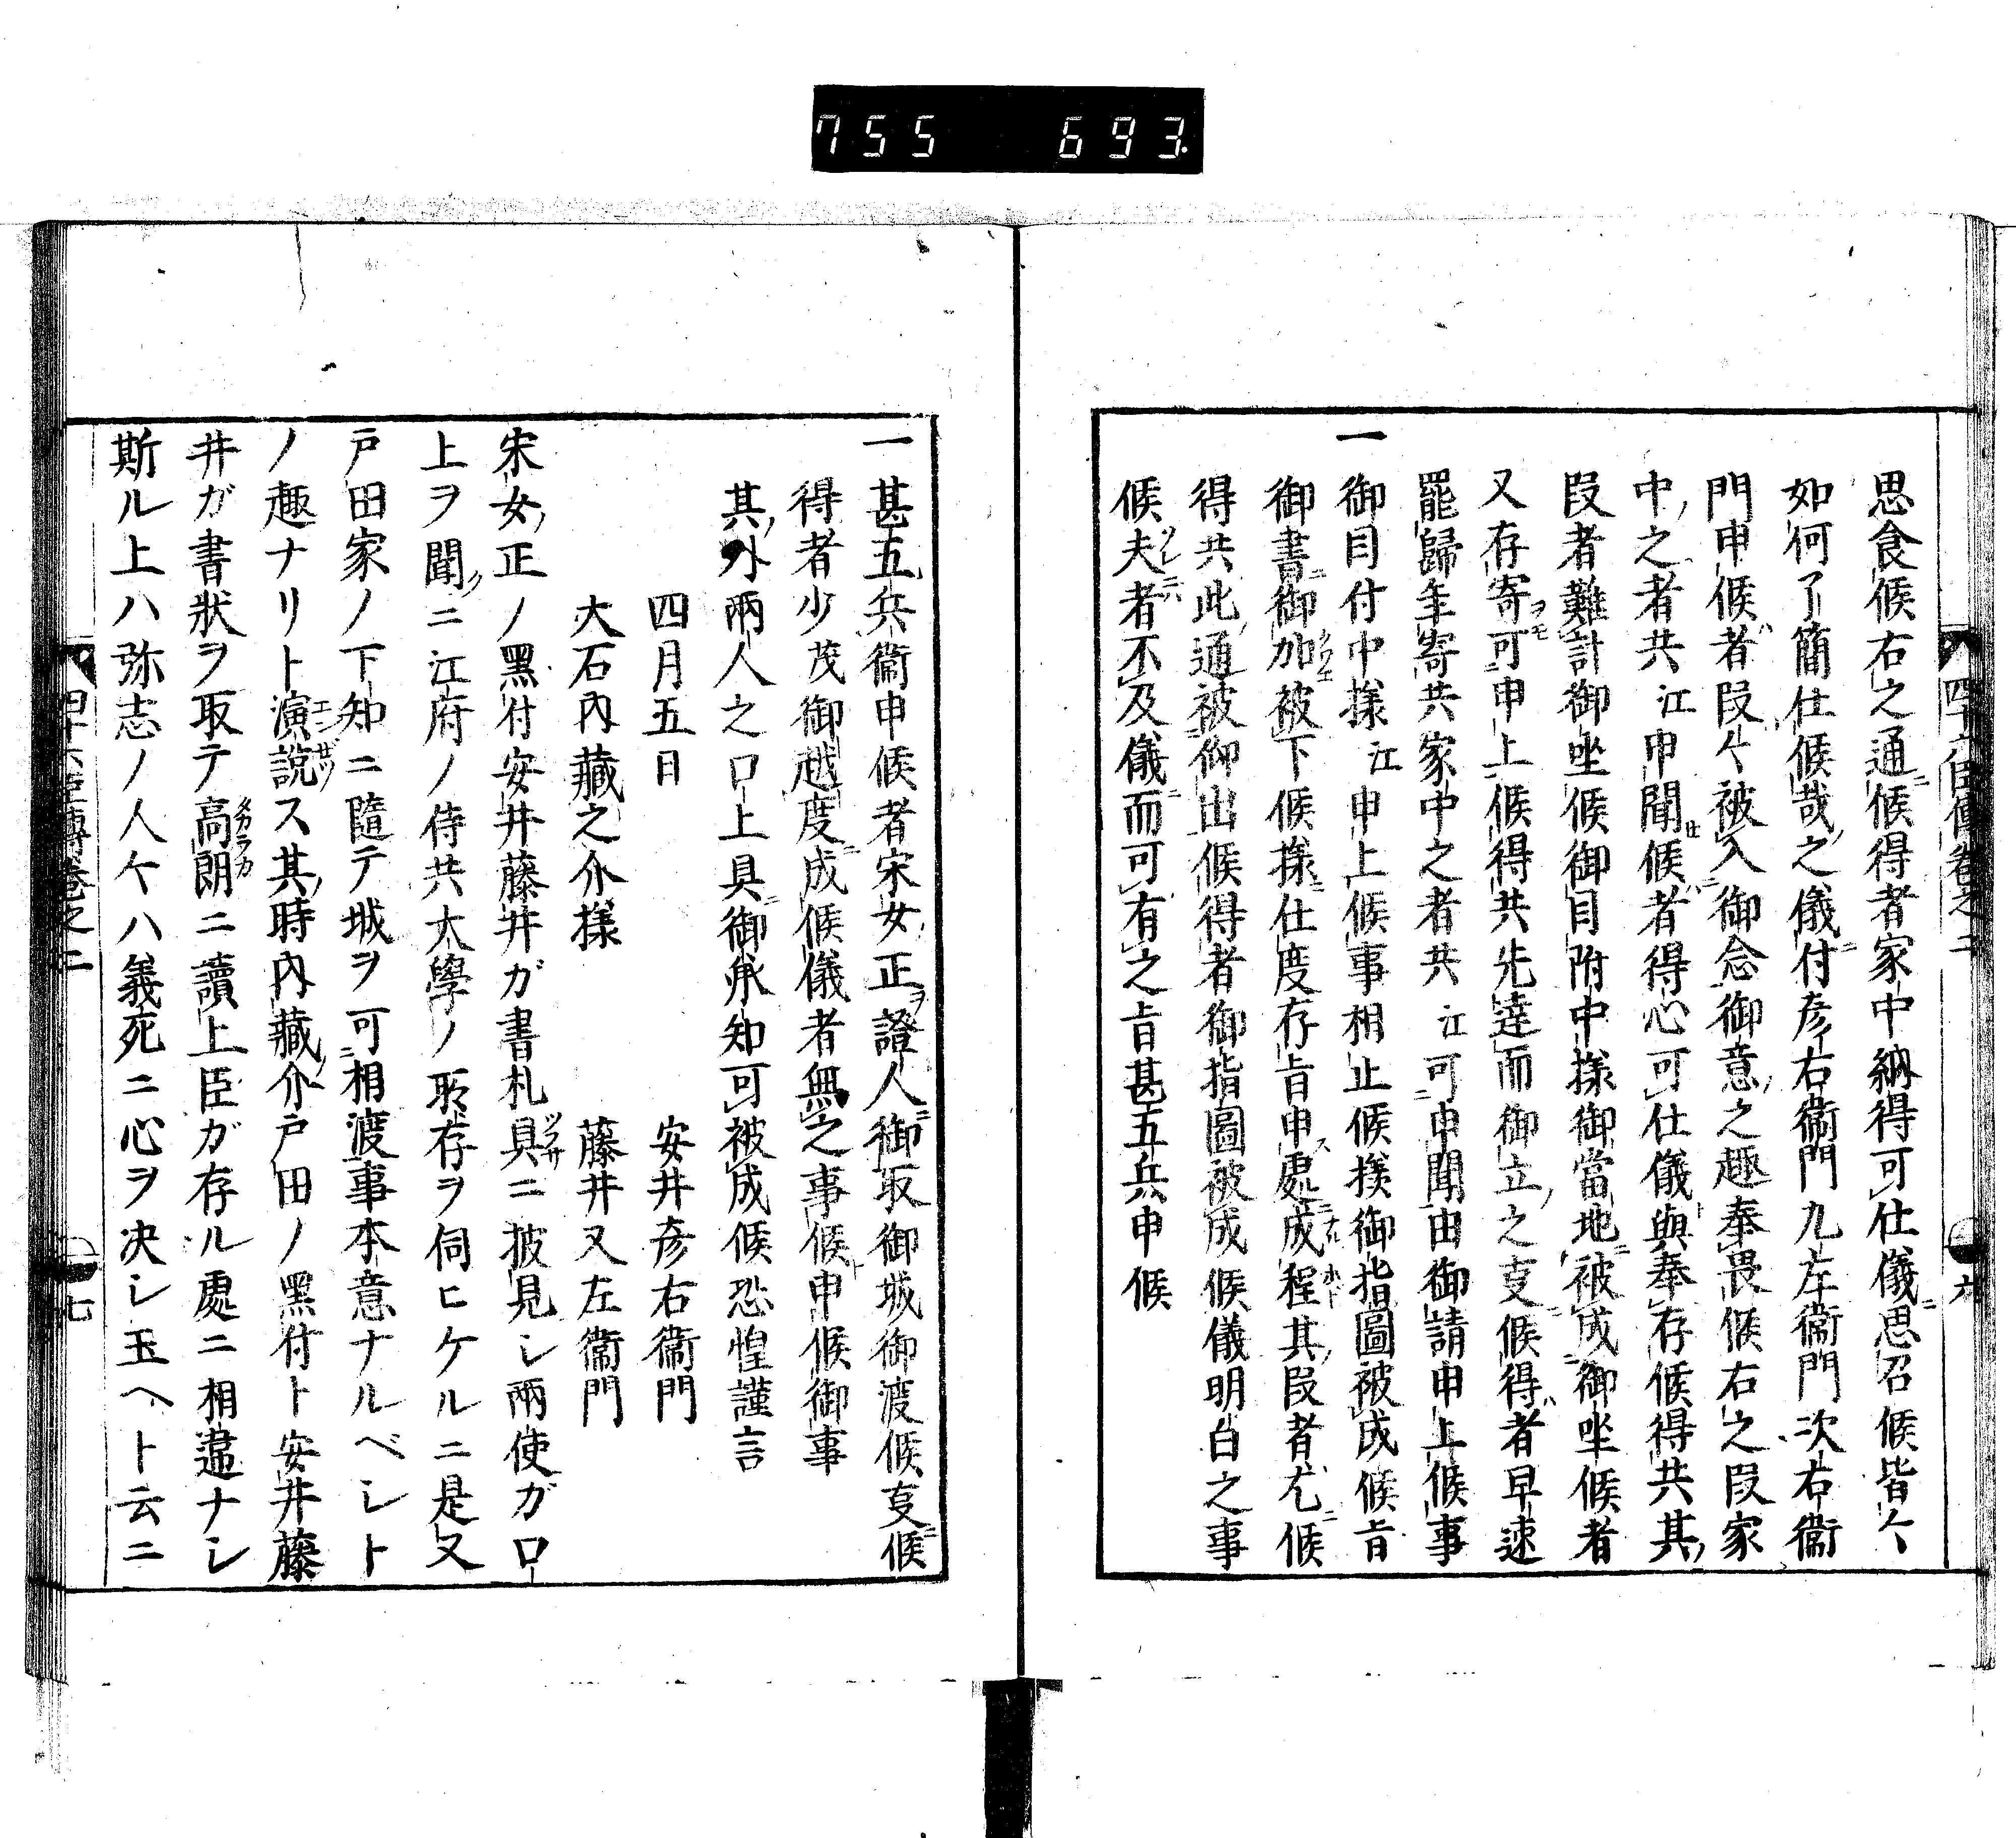 755 693.
四十六臣傳卷之二
六
思食候右之通候得者家中納得可仕儀思召候皆々
如何了簡仕候哉之儀付彦右衞門九左衞門次右衞
門申候者段々被入御念御意之趣奉畏候右之段家
中之者共江申聞候者得心可仕儀與奉存候得共其
段者難計御坐候御目附中様御當地被成御坐候者
又存寄可申上候得共先達而御立之支候得者早速
罷歸年寄共家中之者共江可申聞由御請申上候事
一御目付中様江申上候事相止候様御指圖被成候旨
御書御加被下候様仕度存旨申處成程其段者尤候
得共此通被仰出候得者御指圖被成候儀明白之事
候夫者不及儀而可有之旨甚五兵申候
一甚五兵衞申候者宋女正證人御取御城御渡候支候
得者少茂御越度成候儀者無之事候申候御事
其外兩人之口上具御承知可被成候恐惶謹言
四月五日　安井彦右衞門
大石內藏之介様　藤井又左衞門
宋女正ノ黑付安井藤井ガ書札具ニ披見シ兩使ガ口
上ヲ聞ニ江府ノ侍共大學ノ耶存ヲ伺ヒケルニ是又
戸田家ノ下知ニ隨テ城ヲ可相渡事本意ナルベシト
ノ趣ナリト演說ス其時內藏介戸田ノ黑付ト安井藤
井ガ書狀ヲ取テ高朗ニ讀上臣ガ存ル處ニ相違ナシ
斯ル上ハ弥志ノ人々ハ義死ニ心ヲ决シ玉ヘト云ニ
四十六臣傳卷之二
七